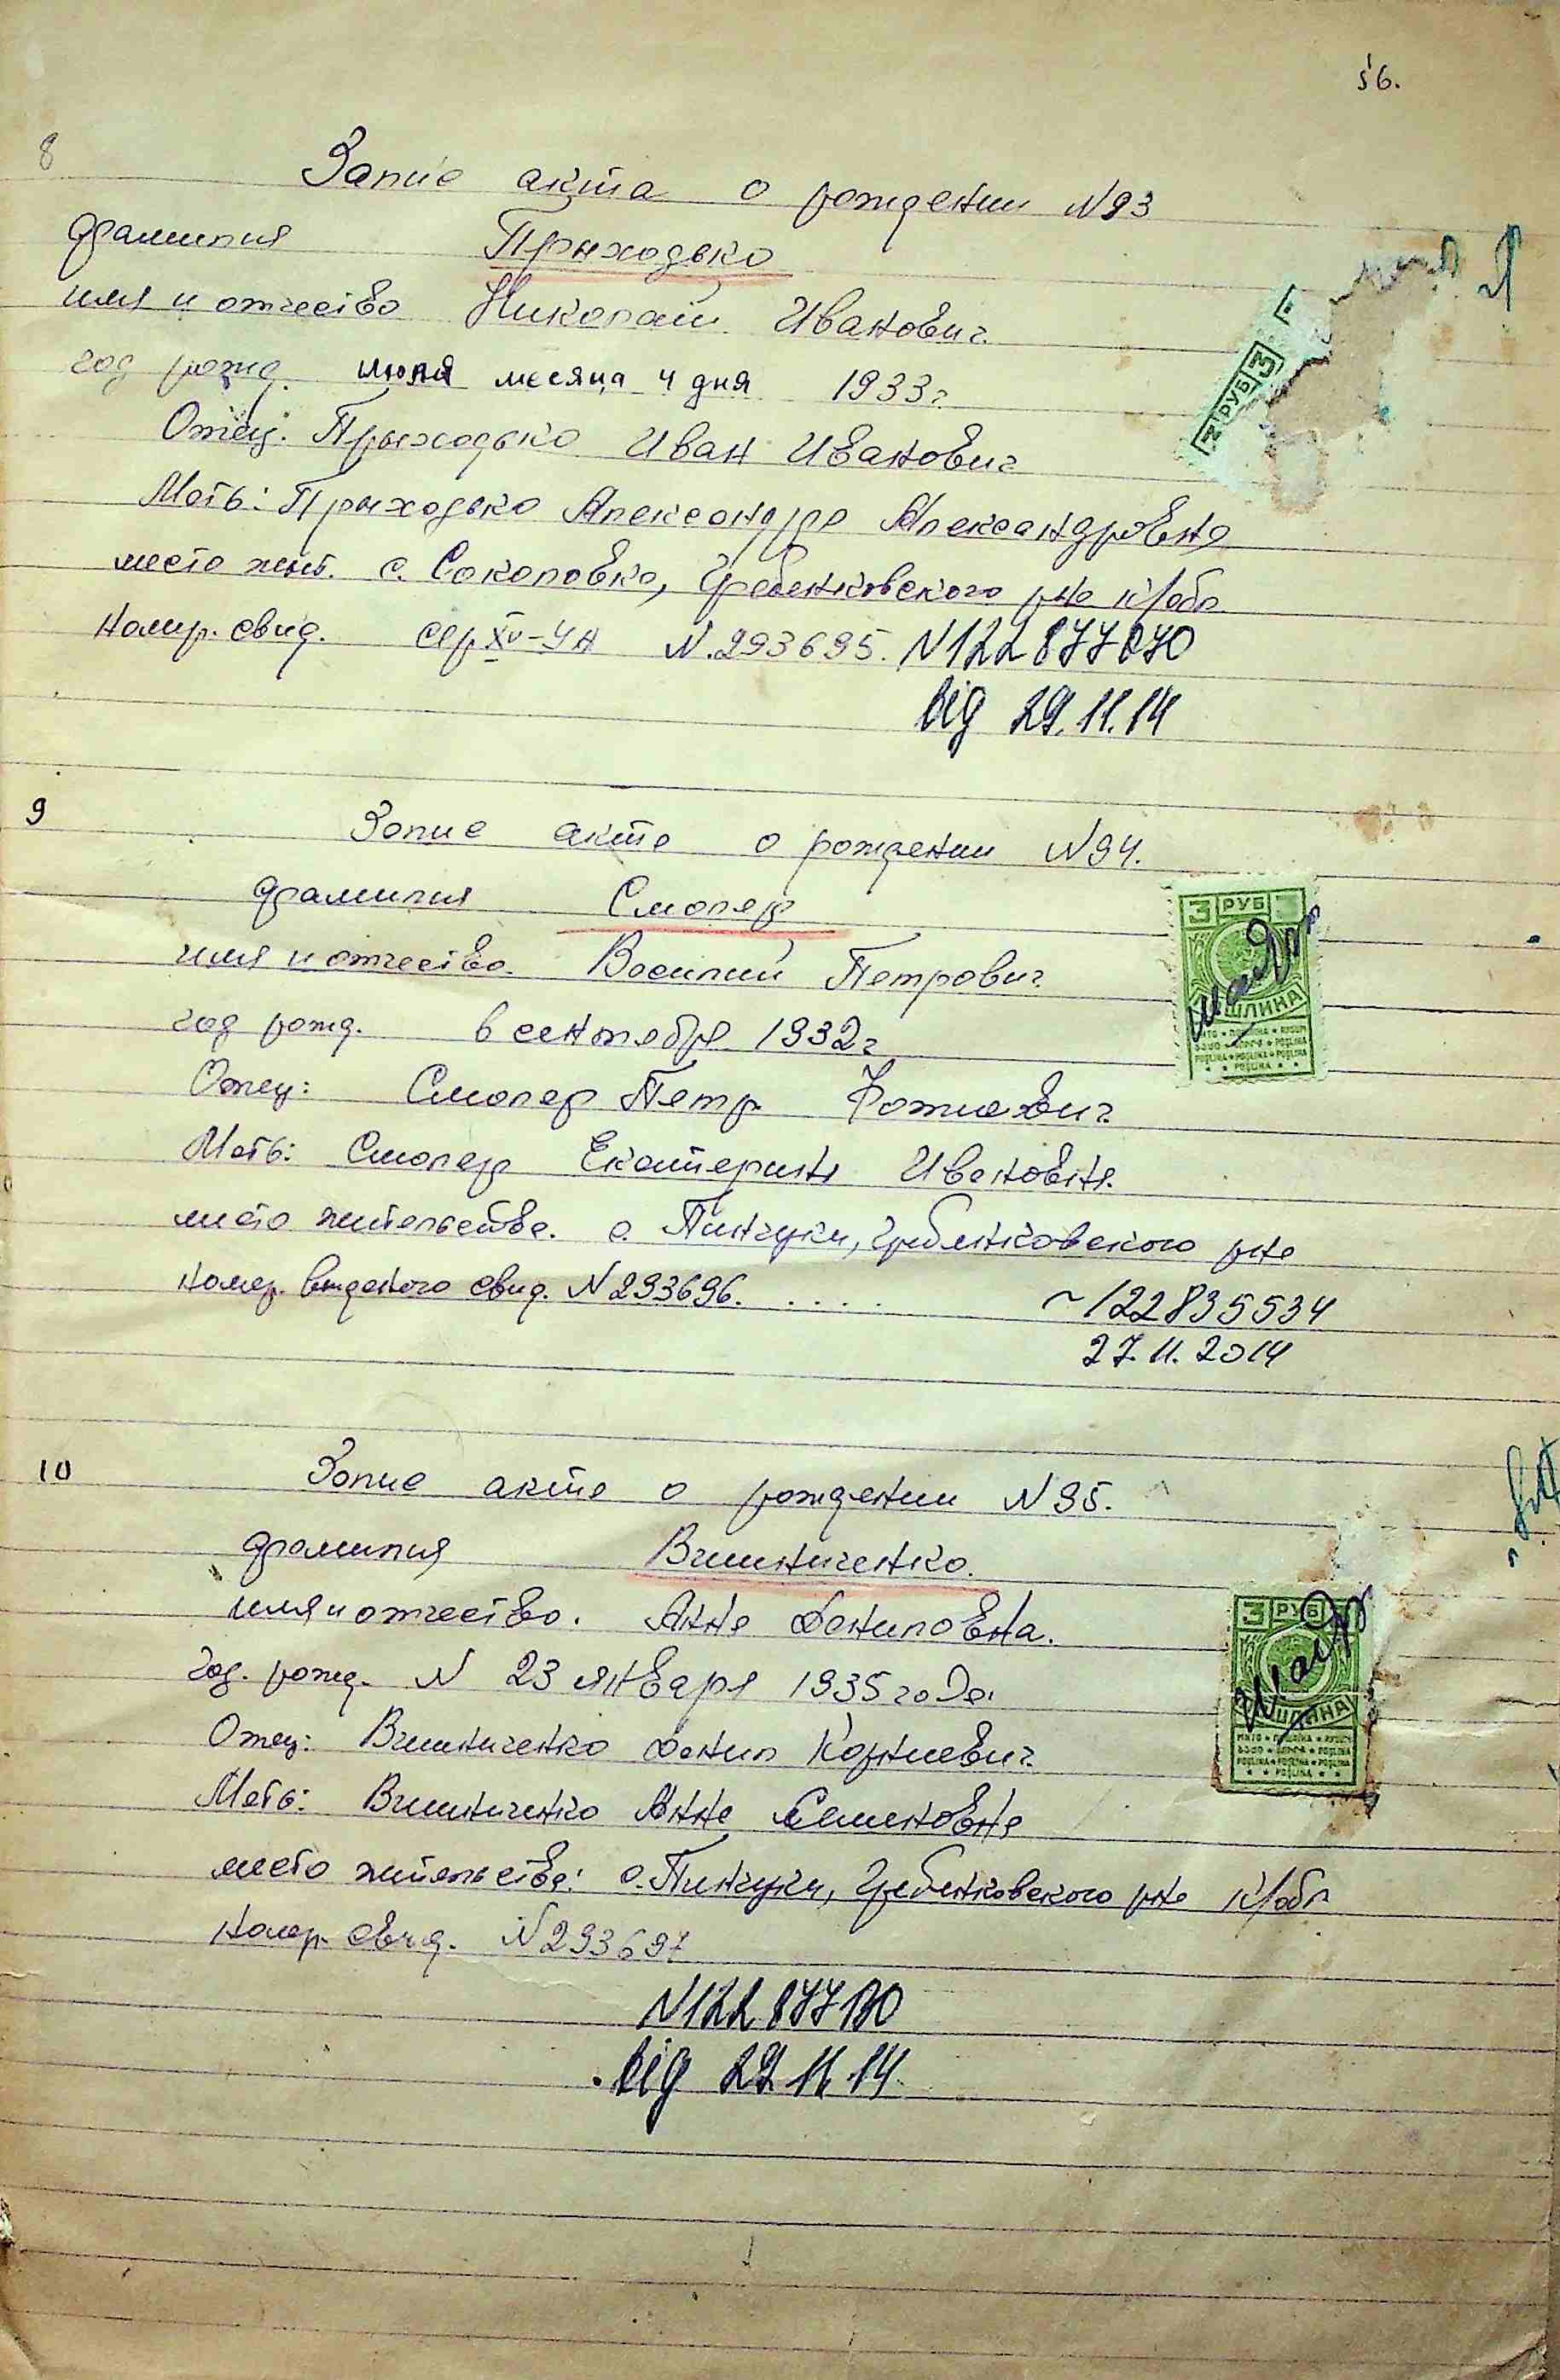 56.
8
Запис акта о рождении N93
фамилия Прыходько
имя и отчество Николай Иванович
год рожд. июля месяца 4 дня 1933г
Отец: Прыходько Иван Иванович
Мать: Прыходько Александра Александровна
место жит. с. Соколовка, Гребенковского р-на К/обл
номер. свид. сер XV-УН N.293695. N122877070
від 29.11.14
3 РУБ 3
9
Запис акта о рождении N94.
фамилия Смоляр
имя и отчество. Василий Петрович
год рожд. в сентября 1932г
Отец: Смоляр Петр Фотиевич
Мать: Смоляр Екатерина Ивановна.
место жительства. с. Пинчуки, Гребенковского р-на
номер. выданого свид. N293696. . . . . ~122835534
27.11.2014
3 РУБ 3
ШЛИНА
10
Запис акта о рождении N95.
фамилия Вишниченко.
имя и отчество. Анна Даниловна.
Год. рожд. N 23 января 1935 года.
Отец: Вишниченко Данил Корниевич
Мать: Вишниченко Анна Семеновна
место жительства: с. Пинчуки, Гребенковского р-на К/обл
номер свид. N293697
N122877130
від 29.11.14.
3 РУБ
ШЛИНА